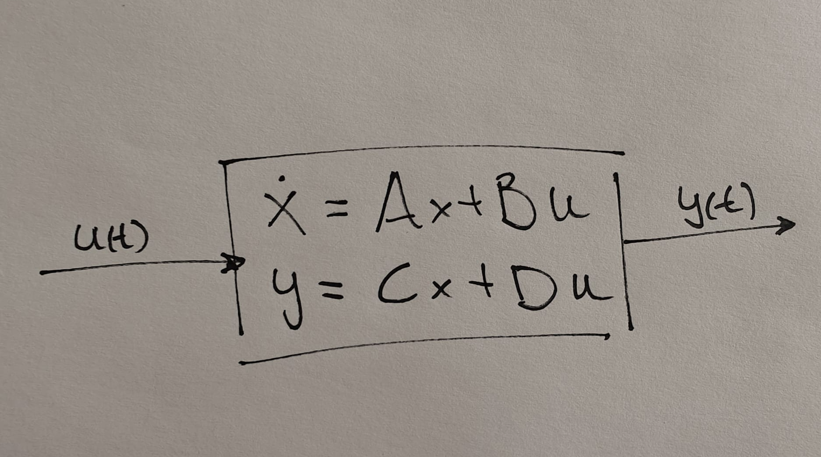 u(t)
ẋ = Ax+Bu
y = Cx+Du
y(t)